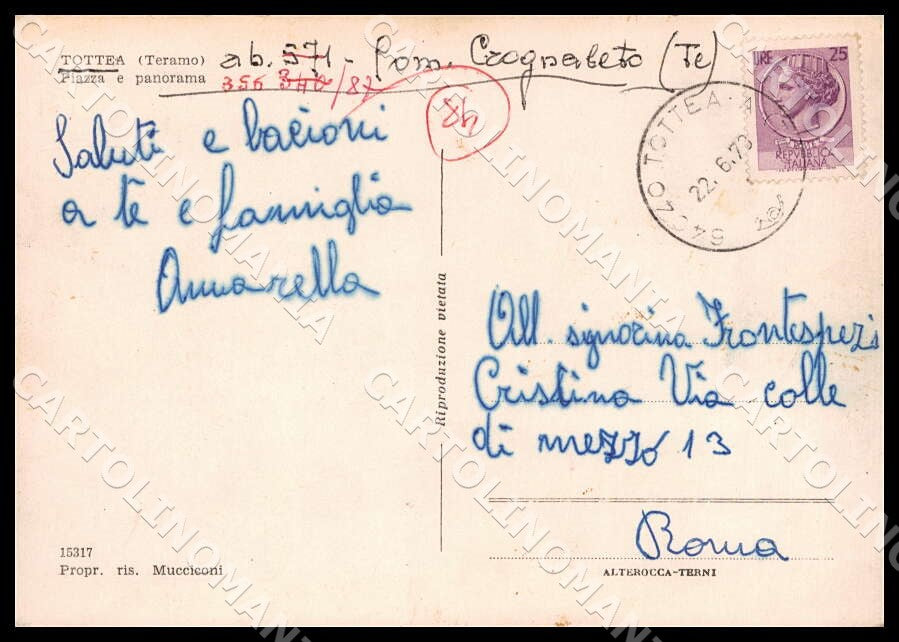 TOTTEA (Teramo) ab. 571 - Com. Crognaleto (Te)
Piazza e panorama 356 /87
Saluti e bacioni
a te e famiglia
Annarella
LIRE 25
REPVBBLICA
ITALIANA
TOTTEA
22.6.73
Riproduzione vietata
All. signorina Frontespezi
Cristina Via colle
di mezzo 13
Roma
15317
Propr. ris. Mucciconi
ALTEROCCA-TERNI
CARTOLINOMANIA